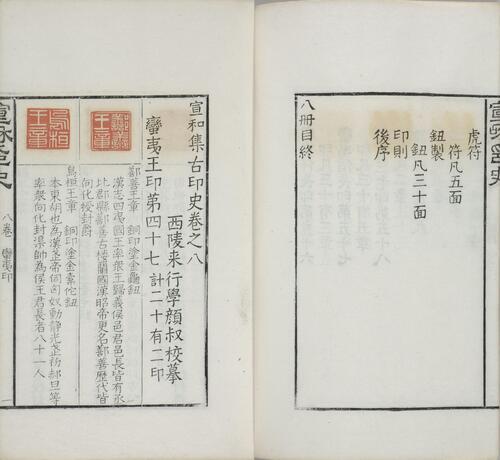 虎符
符凡五面
鈕製
鈕凡三十面
印則
後序
八冊目終
宣和集古印史卷之八
西陵来行學顔叔校摹
蠻夷王印第四十七 計二十有二印
鄯善王章
鄯善王章 銅印塗金龜鈕
漢志四夷國王率衆王歸義侯邑君邑長皆有丞
比郡縣鄯善古樓蘭國漢昭帝更名鄯善歷代皆
向化授封爵
烏桓王章
烏桓王章 銅印塗金橐佗鈕
本東胡也為漢帝伺匈奴動静光武初郝旦等
率衆向化封渠帥為侯王君長者八十一人
八卷 蠻夷印